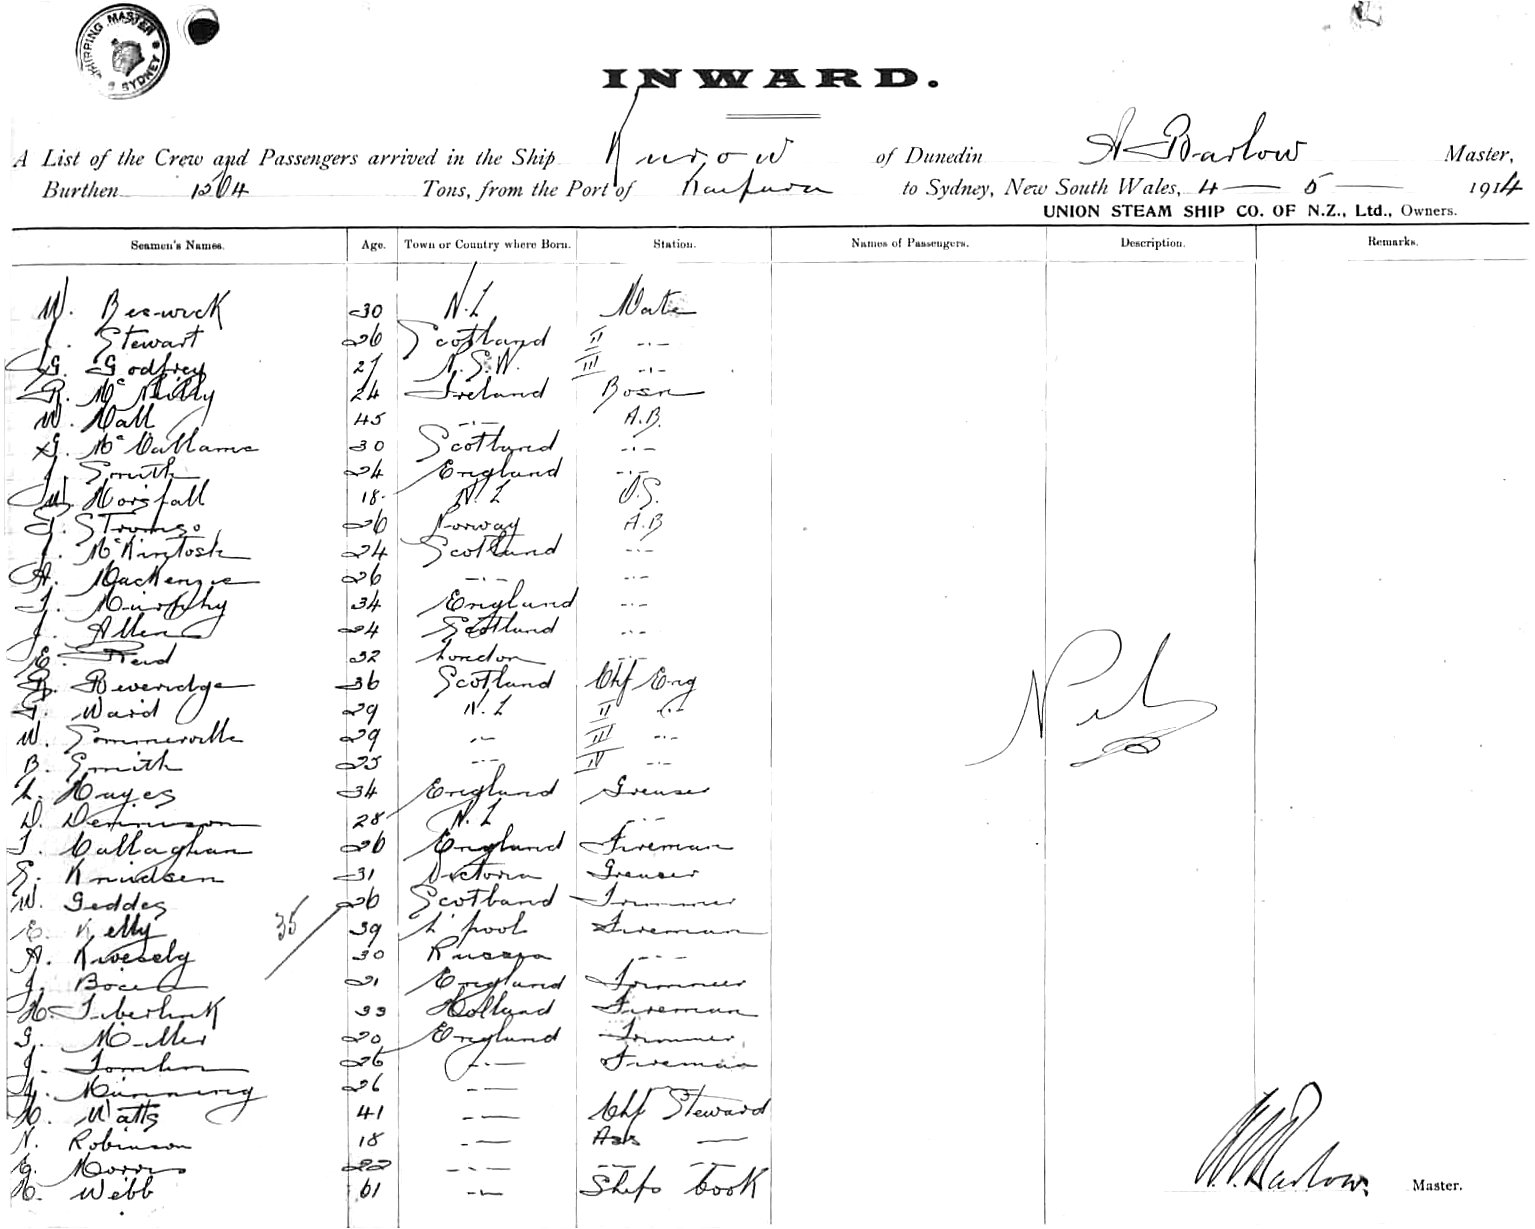 SHIPPING MASTER SYDNEY
INWARD.
A List of the Crew and Passengers arrived in the Ship Kurow of Dunedin A Barlow Master,
Burthen 1504 Tons, from the Port of Kaipara to Sydney, New South Wales, 4 — 5 — 1914
UNION STEAM SHIP CO. OF N.Z., Ltd., Owners.
Seamen's Names. Age. Town or Country where Born. Station. Names of Passengers. Description. Remarks.
W. Beswick 30 N.Z Mate
Stewart 26 Scotland II -·-
G. Godfrey 27 N.S.W. III -·-
R. McNeilly 24 Ireland Bosn
W. Hall 45 -·- A.B.
G. McCallame 30 Scotland -·-
J. Smith 24 England -·-
W. Horsfall 18 N.Z O.S.
26 Norway A.B
J. McKintosh 24 Scotland -·-
A. MacKenzie 26 -·- -·-
J. Murphy 34 England -·-
J. Allen 24 Scotland -·-
E. Reid 32 London -·-
R. Beveridge 36 Scotland Chf Eng
G. Ward 29 N.Z II -·-
W. Sommerville 29 -·- III -·-
B. Smith 25 -·- IV -·-
L. Hayes 34 England Greaser
D. Dennison 28 N.Z -·-
J. Callaghan 26 England Fireman
S. Knudsen 31 Victoria Greaser
W. Geddes 26 Scotland Trimmer
35
E. Kelly 39 L'pool Fireman
A. 30 Russia -·-
J. 21 England Trimmer
H. 33 Holland Fireman
G. Miller 20 England Trimmer
J. Tomlin 26 -·- Fireman
26 -·-
H. Watts 41 -·- Chf Steward
N. Robinson 18 -·- Ass —
Morris 22 -·- -- --
H. Webb 61 -·- Ships Cook
Barlow. Master.